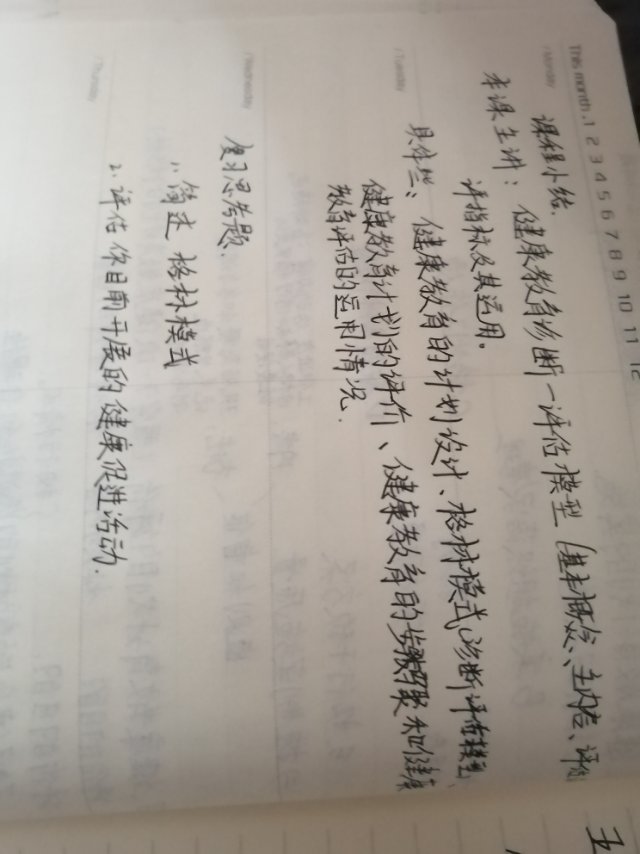 This month. 1 2 3 4 5 6 7 8 9 10 11 12
/ Monday
课程小结.
本课主讲：健康教育诊断—评估模型（基本概念、主内容、评估
评指标及其运用。
/ Tuesday
健康教育的计划设计、格林模式、诊断评估模型、
健康教育计划的评价、健康教育的步骤和健康
教育评估的运用情况.
/ Wednesday
复习思考题.
1、简述格林模式
2. 评估你目前开展的健康促进活动.
/ Thursday